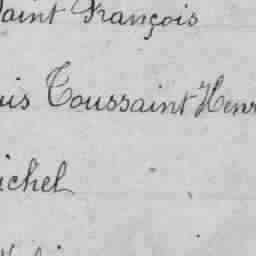 Saint François
uis Toussaint Henr
ichel